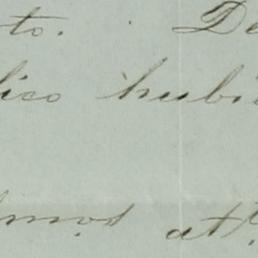 to. De
lico hubi
mos at.